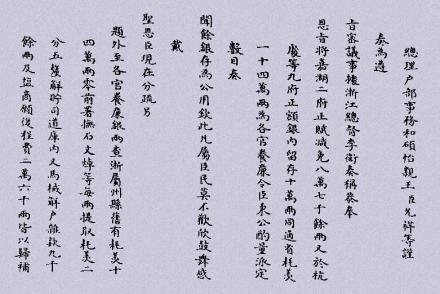 總理戶部事務和碩怡親王臣允祥等謹
奏為遵
旨審議事據浙江總督李衛奏稱恭奉
恩旨將嘉湖二府正賦減免八萬七千餘兩又於杭
嚴等九府正額銀內留存十萬兩同通省耗羨
一十四萬兩為各官養廉令臣秉公酌量派定
數目奏
聞餘銀存為公用欽此凡屬臣民莫不歡欣鼓舞感
戴
聖恩臣現在分疏另
題外至各官養廉銀兩查浙屬州縣舊有耗羨十
四萬兩零前署撫石文焯等每兩提取耗羨二
分五釐解貯司道庫內又馬械解戶雜款九千
餘兩及鹽商願復程費二萬六千兩皆以歸補